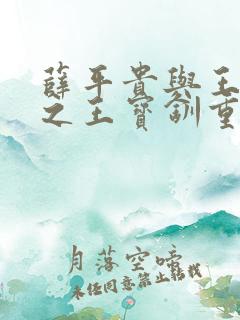 薛平貴與王
之王寶釧重
月落空啼
未经同意禁止转载